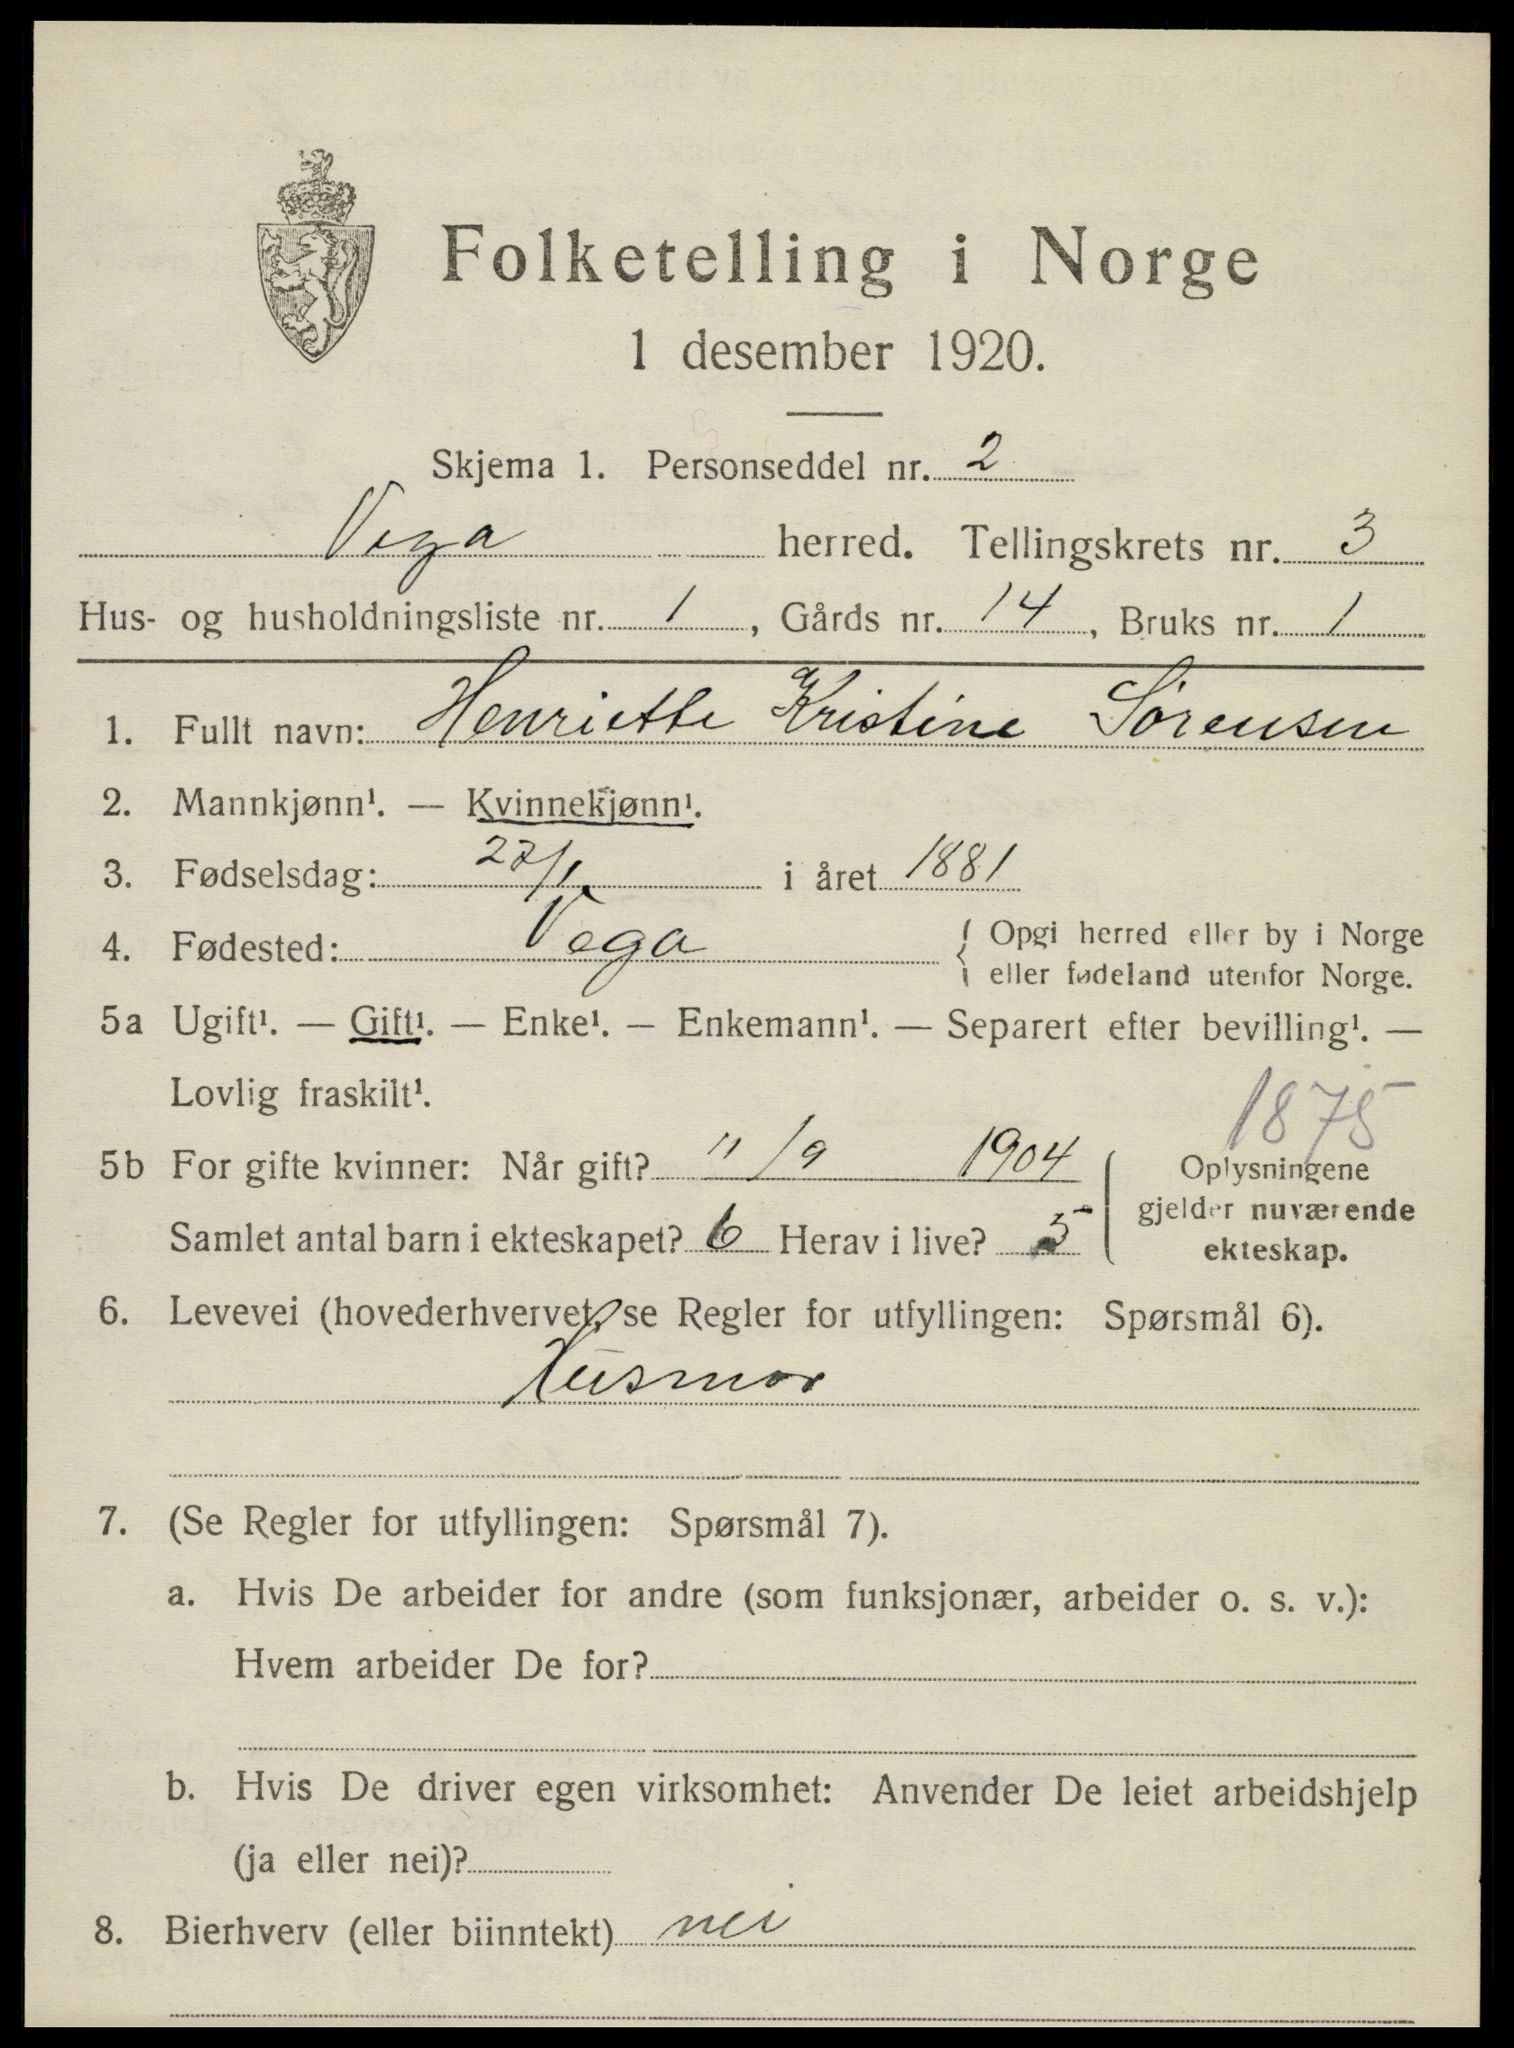 Folketelling i Norge
1 desember 1920.
Skjema 1. Personseddel nr. 2
Vega herred. Tellingskrets nr. 3
Hus- og husholdningsliste nr. 1, Gårds nr. 14, Bruks nr. 1
1. Fullt navn: Henriette Kristine Sörensen
2. Mannkjønn¹. — Kvinnekjønn¹.
3. Fødselsdag: 27/1 i året 1881
4. Fødested: Vega { Opgi herred eller by i Norge
eller fødeland utenfor Norge.
5a Ugift¹. — Gift¹. — Enke¹. — Enkemann¹. — Separert efter bevilling¹. —
Lovlig fraskilt¹.
1875
5b For gifte kvinner: Når gift? 11/9 1904
Samlet antal barn i ekteskapet? 6 Herav i live? 5
Oplysningene
gjelder nuværende
ekteskap.
6. Levevei (hovederhvervet, se Regler for utfyllingen: Spørsmål 6).
Husmor
7. (Se Regler for utfyllingen: Spørsmål 7).
a. Hvis De arbeider for andre (som funksjonær, arbeider o. s. v.):
Hvem arbeider De for?
b. Hvis De driver egen virksomhet: Anvender De leiet arbeidshjelp
(ja eller nei)?
8. Bierhverv (eller biinntekt) nei